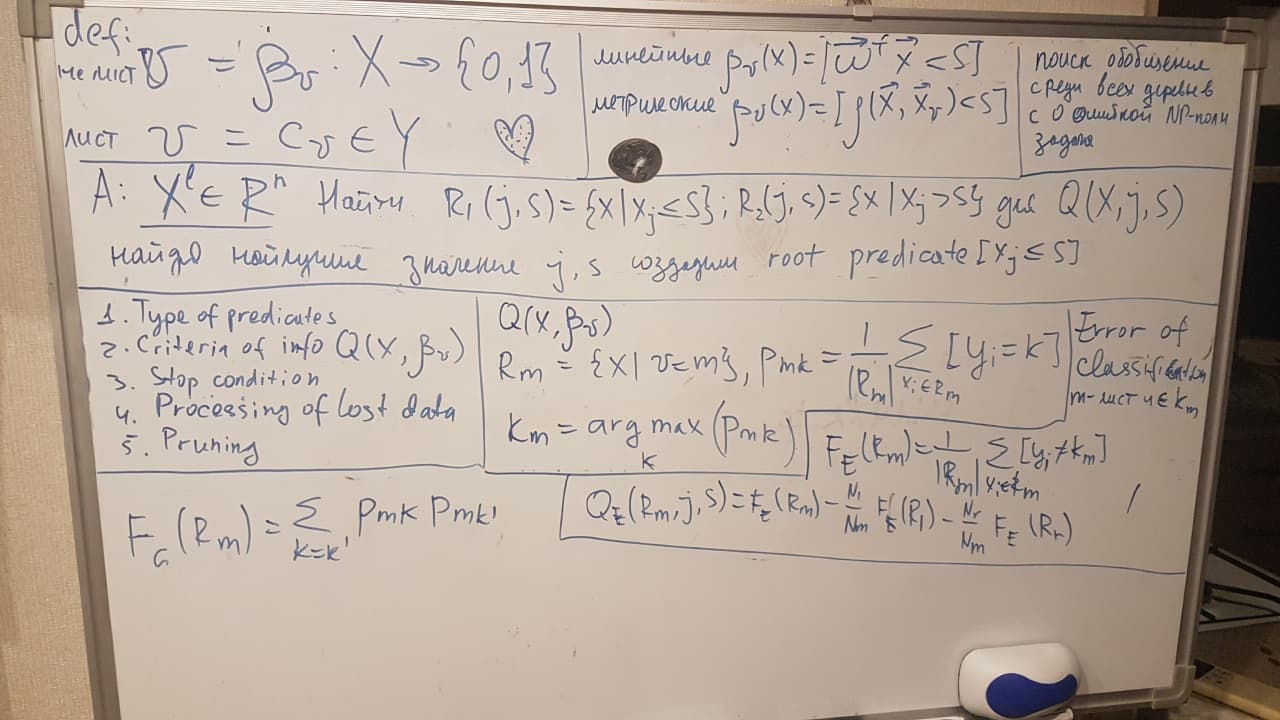 def:
не лист v = βv : X → {0,1}
лист v = Cv ∈ Y
линейные βv(x) = [w⃗ᵀ x⃗ < S]
метрические βv(x) = [ρ(x⃗, x⃗v) < S]
поиск обобщение
среди всех деревьев
с 0 ошибкой NP-полн
задача
A: Xˡ ∈ Rⁿ Найти R₁(j,s) = {x | xj ≤ s}; R₂(j,s) = {x | xj > s} для Q(X,j,s)
найдя найлучшие значение j, s создадим root predicate [xj ≤ s]
1. Type of predicates
2. Criteria of info Q(X, βv)
3. Stop condition
4. Processing of lost data
5. Pruning
Q(X, βv)
Rm = {x | v=m}, pmk = 1/|Rm| Σ xi∈Rm [yi = k]
km = arg max k (pmk)
Error of
classification
m-лист ч∈ km
FE(Rm) = 1/|Rm| Σ xi∈Rm [yi ≠ km]
QE(Rm, j, s) = FE(Rm) - Nl/Nm FE(Rl) - Nr/Nm FE(Rr)
FG(Rm) = Σ k=k' pmk pmk'